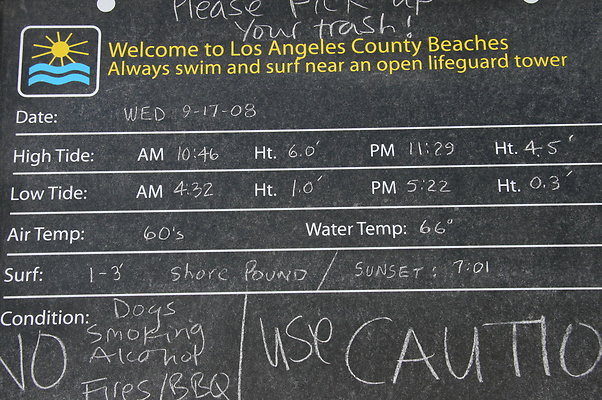 Please Pick up
your trash!
Welcome to Los Angeles County Beaches
Always swim and surf near an open lifeguard tower
Date: WED 9-17-08
High Tide: AM 10:46 Ht. 6.0' PM 11:29 Ht. 4.5'
Low Tide: AM 4:32 Ht. 1.0' PM 5:22 Ht. 0.3'
Air Temp: 60's Water Temp: 66°
Surf: 1-3' Shore Pound / SUNSET: 7:01
Condition: Dogs
Smoking
NO Alcohol / use CAUTIO
Fires/BBQ